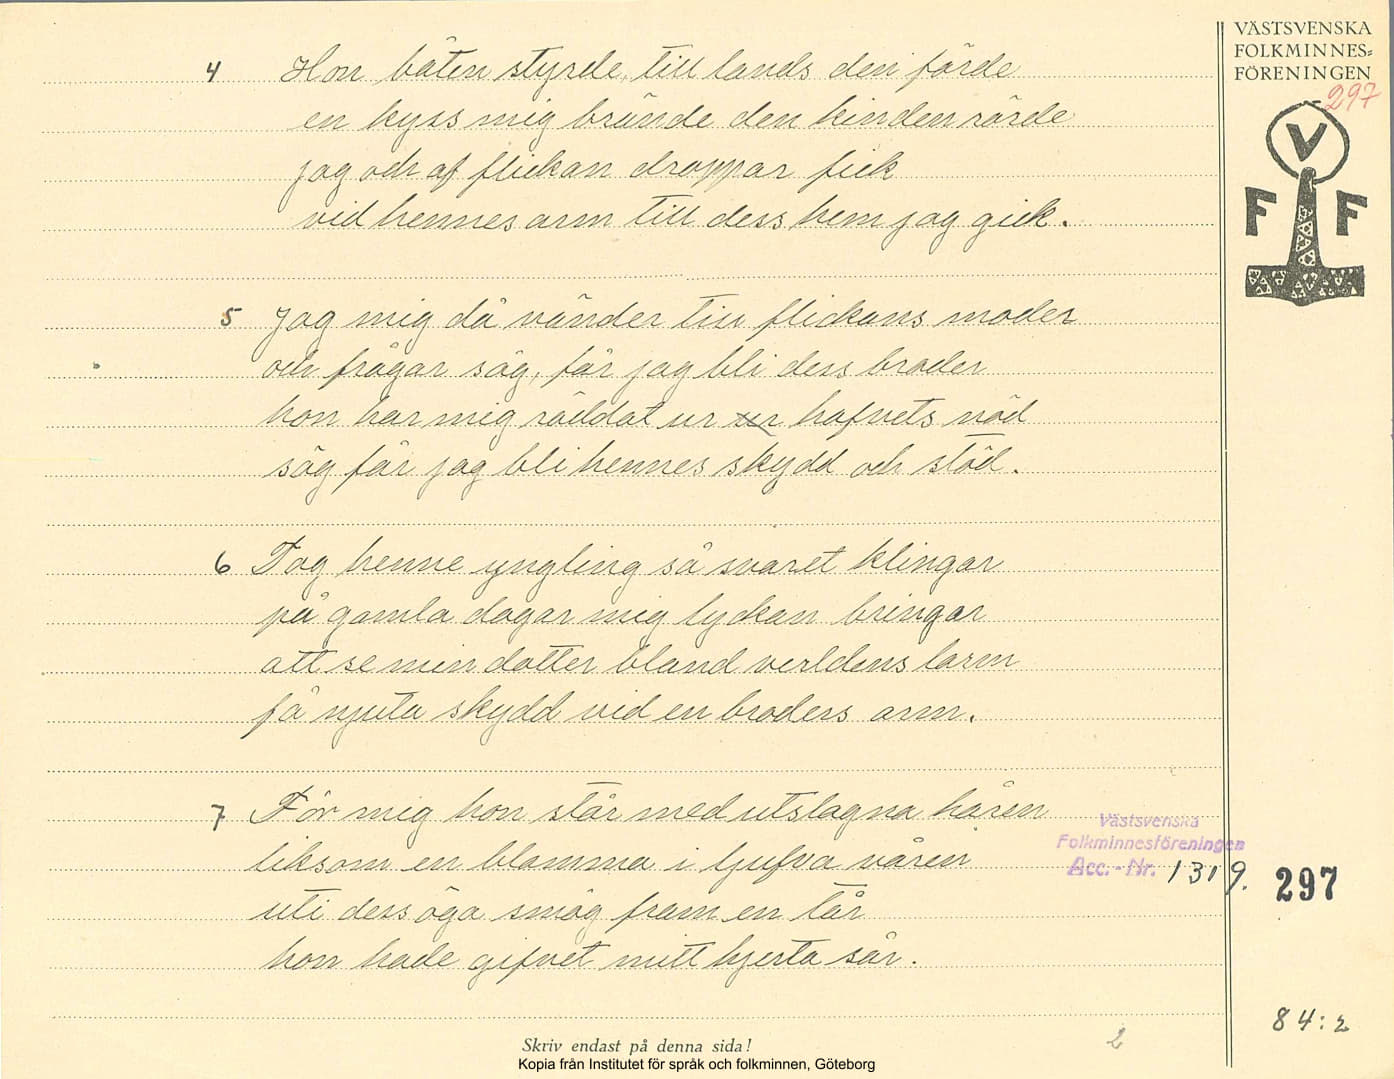 VÄSTSVENSKA
FOLKMINNES=
FÖRENINGEN
297
V
F F
4 Hon båten styrde, till lands den förde
en kyss mig brände den kinden rörde
jag och af flickan droppar fick
vid hennes arm till dess hem jag gick.
5 Jag mig då vänder till flickans moder
och frågar säg, får jag bli dess broder
hon har mig räddat ur ur hafvets nöd
säg får jag bli hennes skydd och stöd.
6 Tag henne yngling så svaret klingar
på gamla dagar mig lyckan bringar
att se min dotter bland verldens larm
få njuta skydd vid en broders arm.
7 För mig hon står med utslagna håren
liksom en blomma i ljufva våren
uti dess öga smög fram en tår
hon hade gifvet mitt hjerta sår.
Västsvenska
Folkminnesföreningen
Acc. - Nr. 1319.
297
84:2
2
Skriv endast på denna sida!
Kopia från Institutet för språk och folkminnen, Göteborg